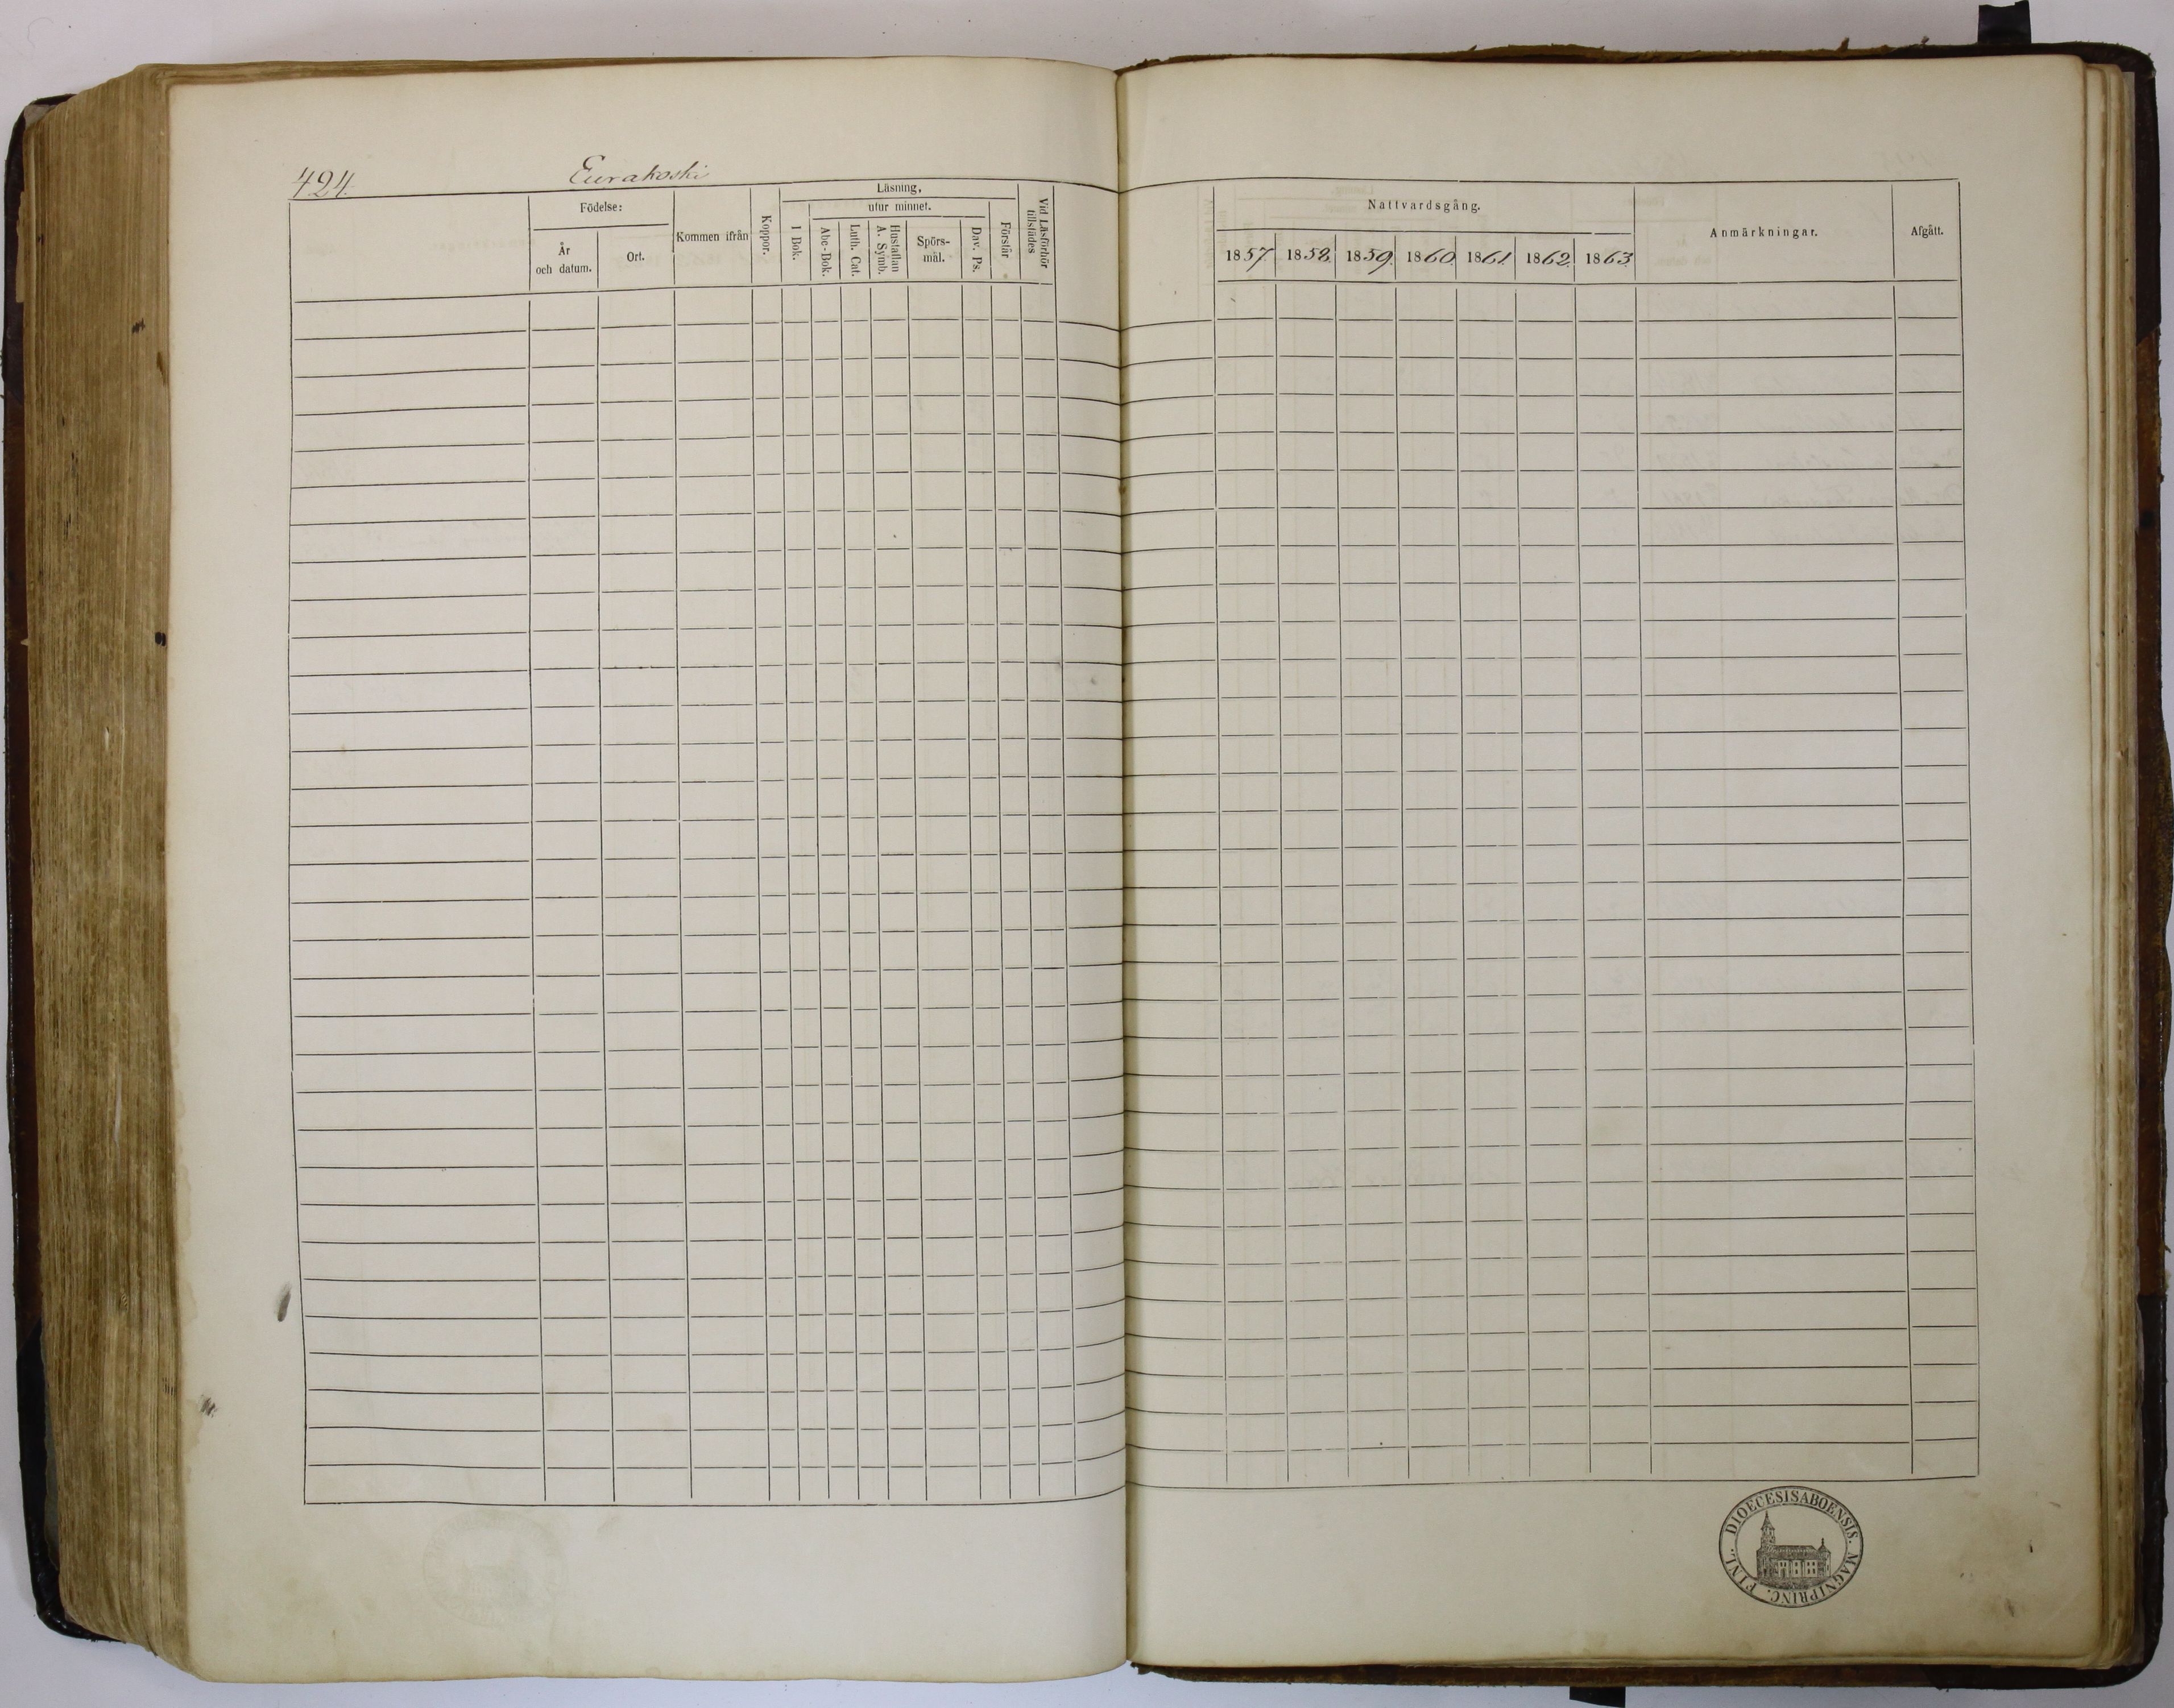 424.
Eurakoski
Födelse:
År
och datum.
Ort.
Kommen ifrån
Koppor.
Läsning,
utur minnet.
1 Bok.
Abc-Bok.
Luth. Cat.
Hustaflan
A. Symb.
Spörs-
mål.
Dav. Ps.
Förstår
Vid Läsförhör
tillstädes
Nattvardsgång.
1857 1858. 1859. 1860. 1861. 1862. 1863.
Anmärkningar.
Afgått.
DIOECESIS ABOENSIS. MAGNI PRINC. FINL.